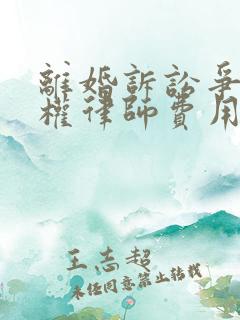 離婚訴訟爭
權律師費用
王志超
未任同意禁止轉載